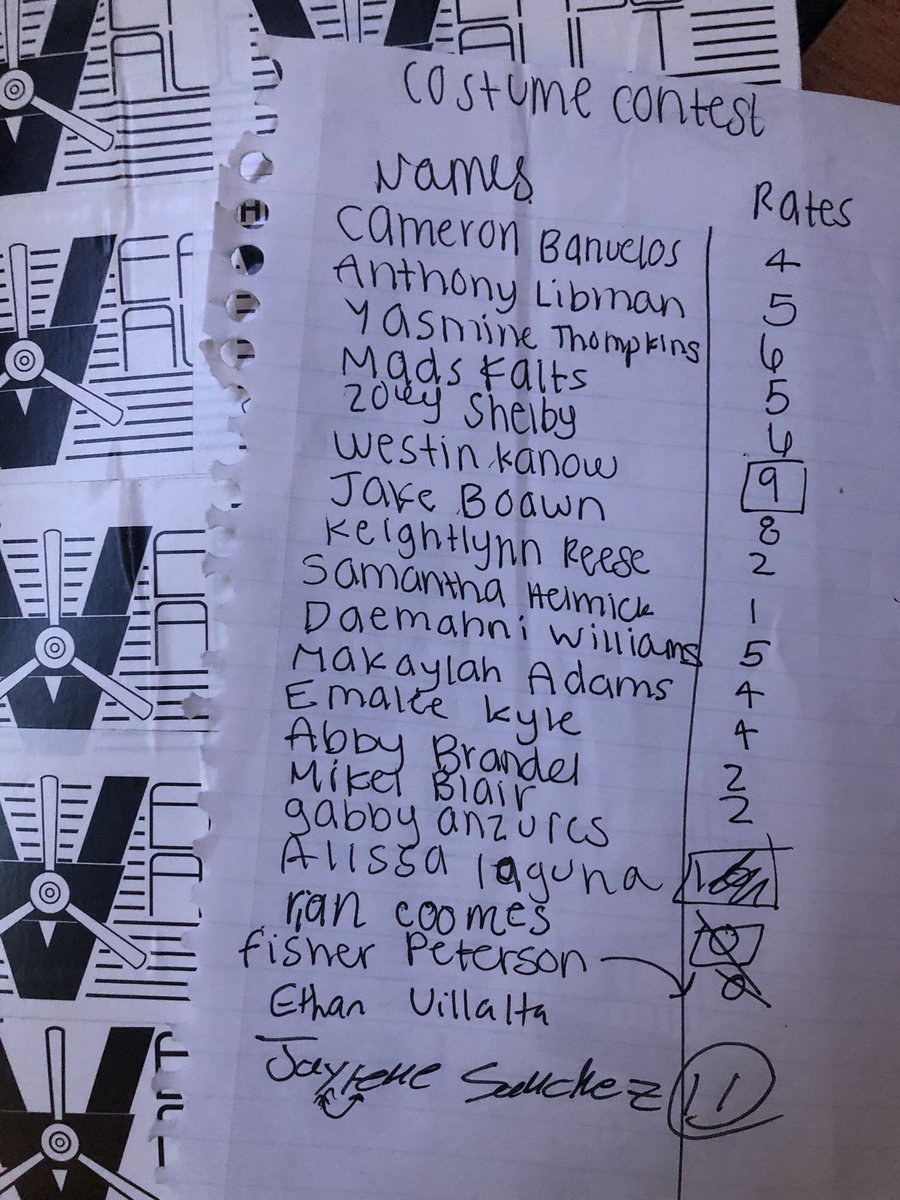 Costume contest
Names Rates
Cameron Banuelos 4
Anthony Libman 5
Yasmine Thompkins 6
Mads Kaits 5
Zoey Shelby 6
Westin Kanow 9
Jake Boawn 8
Keightlynn Reese 2
Samantha Helmick 1
Daemahni Williams 5
Makaylah Adams 4
Emalee Kyle 4
Abby Brandel 2
Mikel Blair 2
gabby anzures
Alissa laguna
rian coomes
fisher Peterson
Ethan Villalta
Sanchez 11